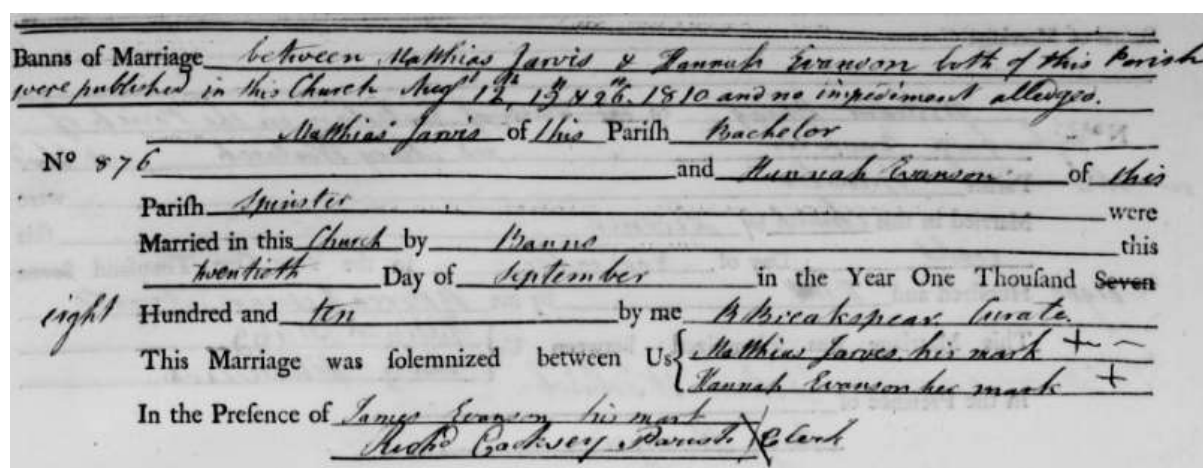 Banns of Marriage between Matthias Jarvis & Hannah Evanson both of this Parish
were published in this Church Augst 12th, 19th & 26th. 1810 and no impediment alledged.
Matthias Jarvis of this Parish Bachelor
No 876 and Hannah Evanson of this
Parish Spinster were
Married in this Church by Banns this
twentieth Day of September in the Year One Thousand Seven
eight Hundred and ten by me B Breakspear. Curate.
This Marriage was solemnized between Us Matthias Jarves his mark + -
Hannah Evanson her mark +
In the Presence of James Evanson his mark
Richd Cooksey Parish Clerk X